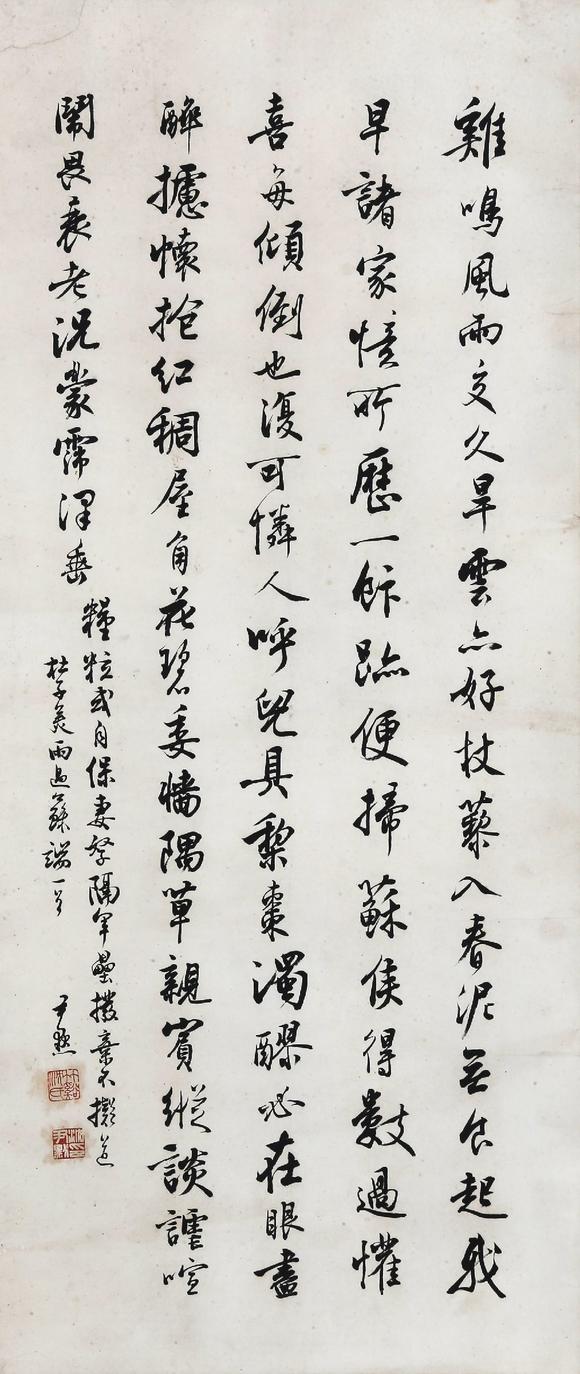 雞鳴風雨交久旱雲亦好杖藜入春泥無食起我
早諸家憶所歷一飰跡便掃蘇侯得數過懽
喜每傾倒也復可憐人呼兒具梨棗濁醪必在眼盡
醉攄懷抱紅稠屋角花碧委牆隅草親賓縱談謔喧
鬧畏衰老況蒙霈澤垂
糧粒或自保妻孥隔軍壘撥棄不擬道
杜子美雨過蘇端一首
尹默
竹谿沈氏